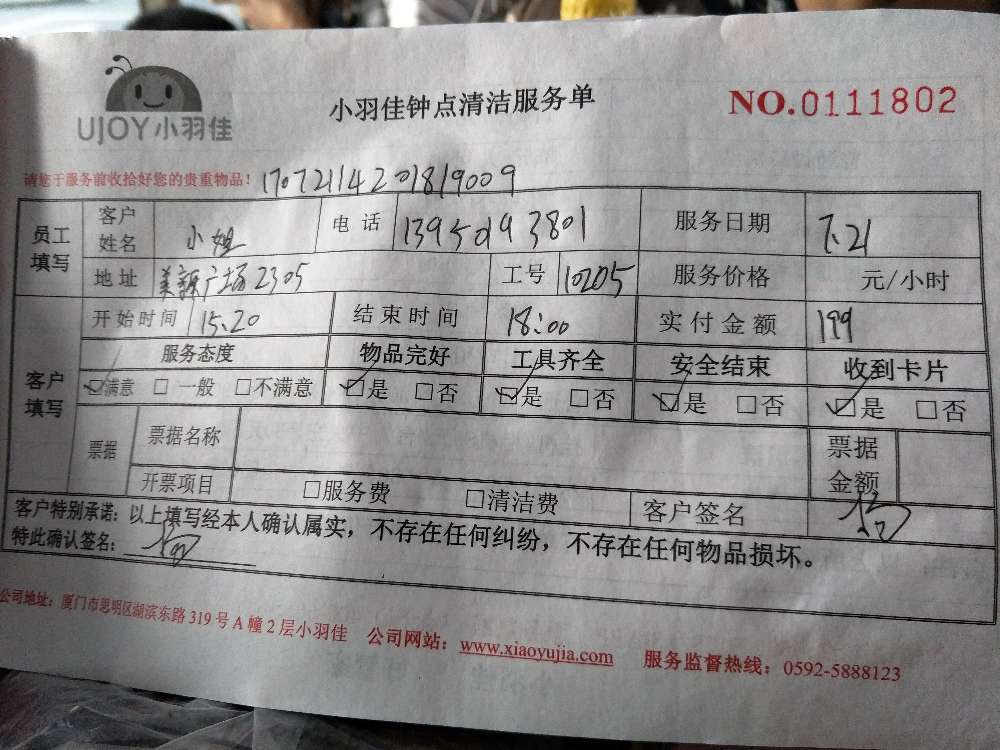 UJOY小羽佳
小羽佳钟点清洁服务单
NO.0111802
请您于服务前收拾好您的贵重物品! 17072114201819009
员工填写 客户姓名 小姐 电话 13950193801 服务日期 7.21
地址 美 广场2305 工号 10205 服务价格 元/小时
开始时间 15:20 结束时间 18:00 实付金额 199
客户填写 服务态度 物品完好 工具齐全 安全结束 收到卡片
☑满意 □一般 □不满意 ☑是 □否 ☑是 □否 ☑是 □否 ☑是 □否
票据 票据名称 票据金额
开票项目 □服务费 □清洁费 客户签名
客户特别承诺:以上填写经本人确认属实,不存在任何纠纷,不存在任何物品损坏。
特此确认签名:
公司地址:厦门市思明区湖滨东路319号A幢2层小羽佳 公司网站:www.xiaoyujia.com 服务监督热线:0592-5888123